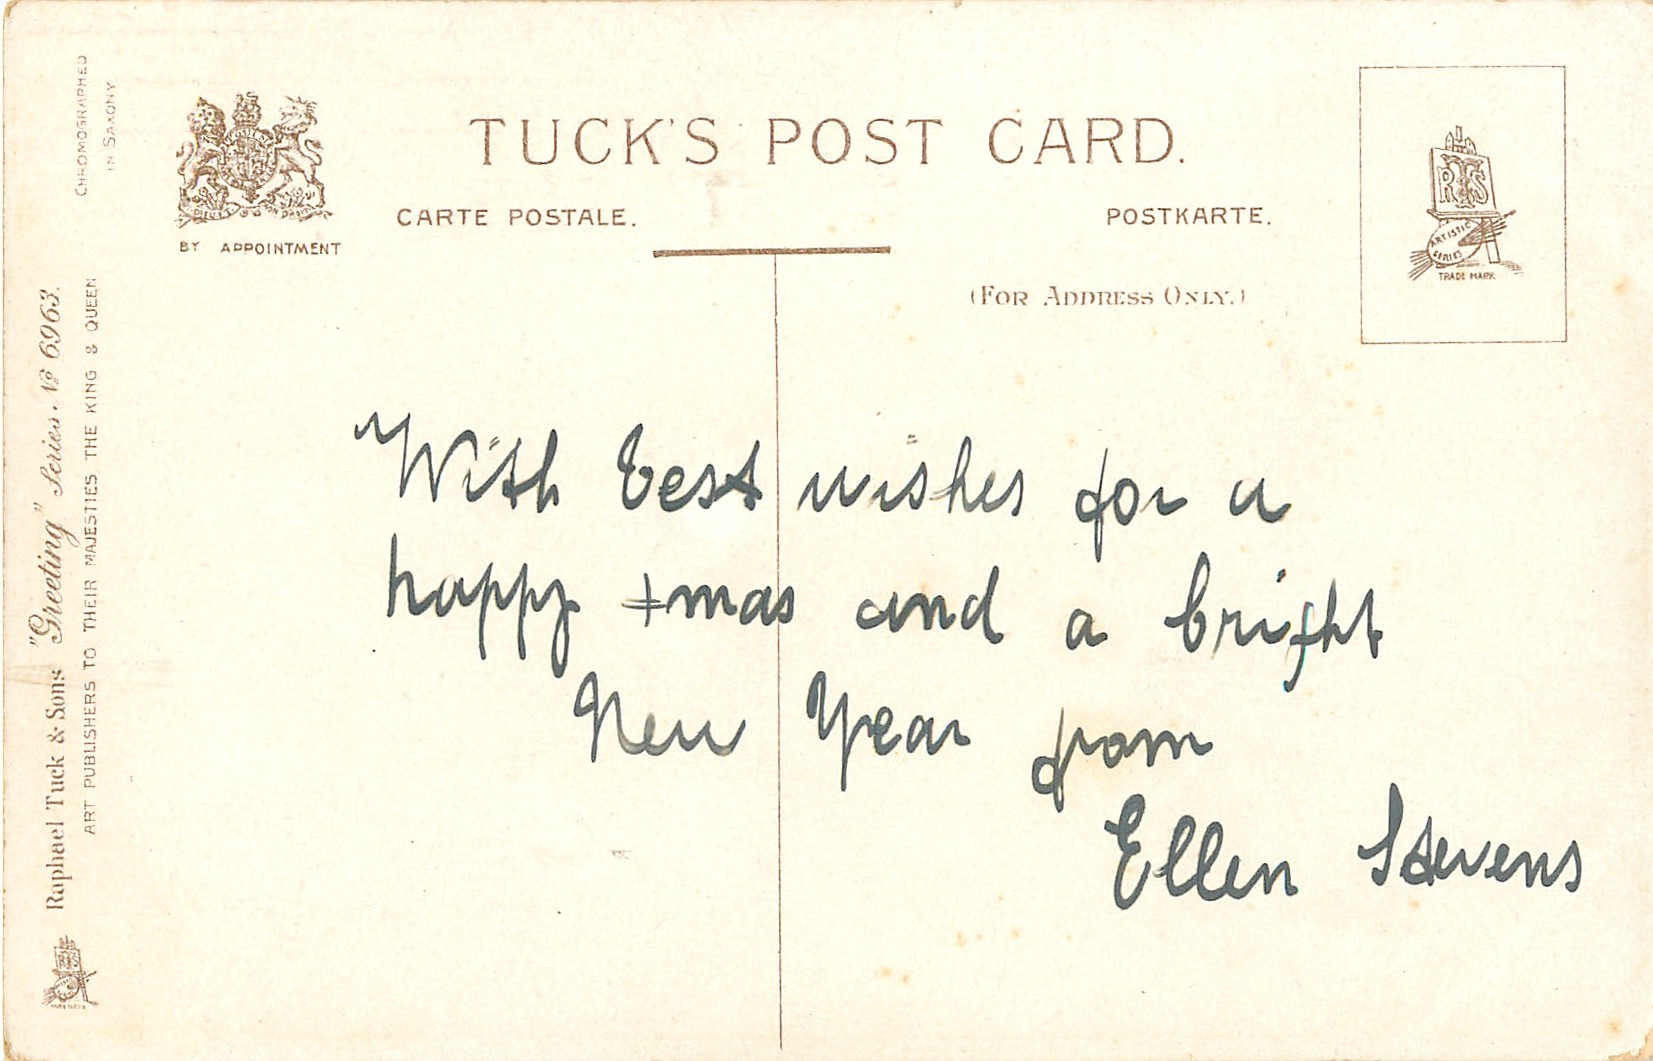 CHROMOGRAPHED
IN SAXONY
BY APPOINTMENT
TUCK'S POST CARD.
CARTE POSTALE.
POSTKARTE.
(FOR ADDRESS ONLY.)
RTS
ARTISTIC
SERIES
TRADE MARK.
Raphael Tuck & Sons "Greeting" Series. No 6963.
ART PUBLISHERS TO THEIR MAJESTIES THE KING & QUEEN
With best wishes for a
happy +mas and a bright
New Year from
Ellen Stevens